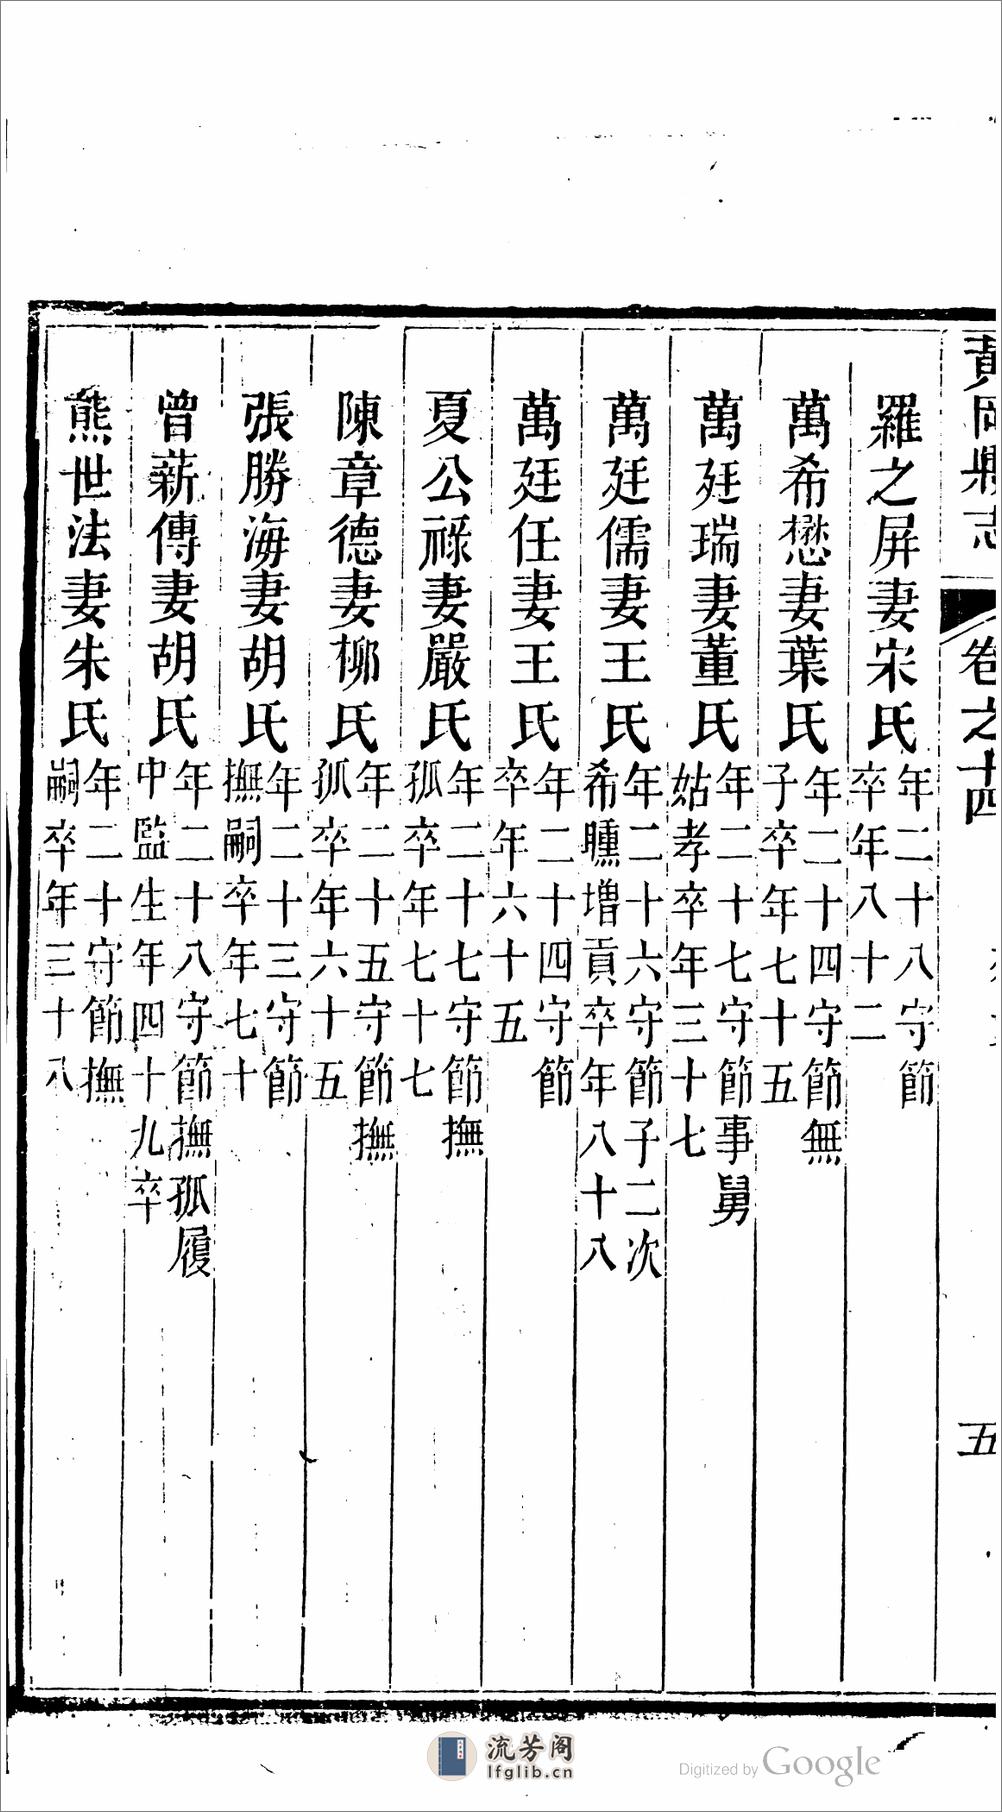 黃岡縣志 卷之十四 五
羅之屏妻宋氏 年二十八守節
卒年八十二
萬希懋妻葉氏 年二十四守節無
子卒年七十五
萬廷瑞妻董氏 年二十七守節事舅
姑孝卒年三十七
萬廷儒妻王氏 年二十六守節子二次
希曛增貢卒年八十八
萬廷任妻王氏 年二十四守節
卒年六十五
夏公祿妻嚴氏 年二十七守節撫
孤卒年七十七
陳章德妻柳氏 年二十五守節撫
孤卒年六十五
張勝海妻胡氏 年二十三守節
撫嗣卒年七十
曾薪傳妻胡氏 年二十八守節撫孤履
中監生年四十九卒
熊世法妻朱氏 年二十守節撫
嗣卒年三十八
流芳阁
lfglib.cn
Digitized by Google